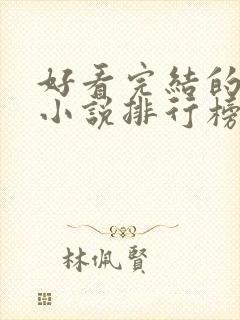 好看完結的
小說排行榜
林佩賢